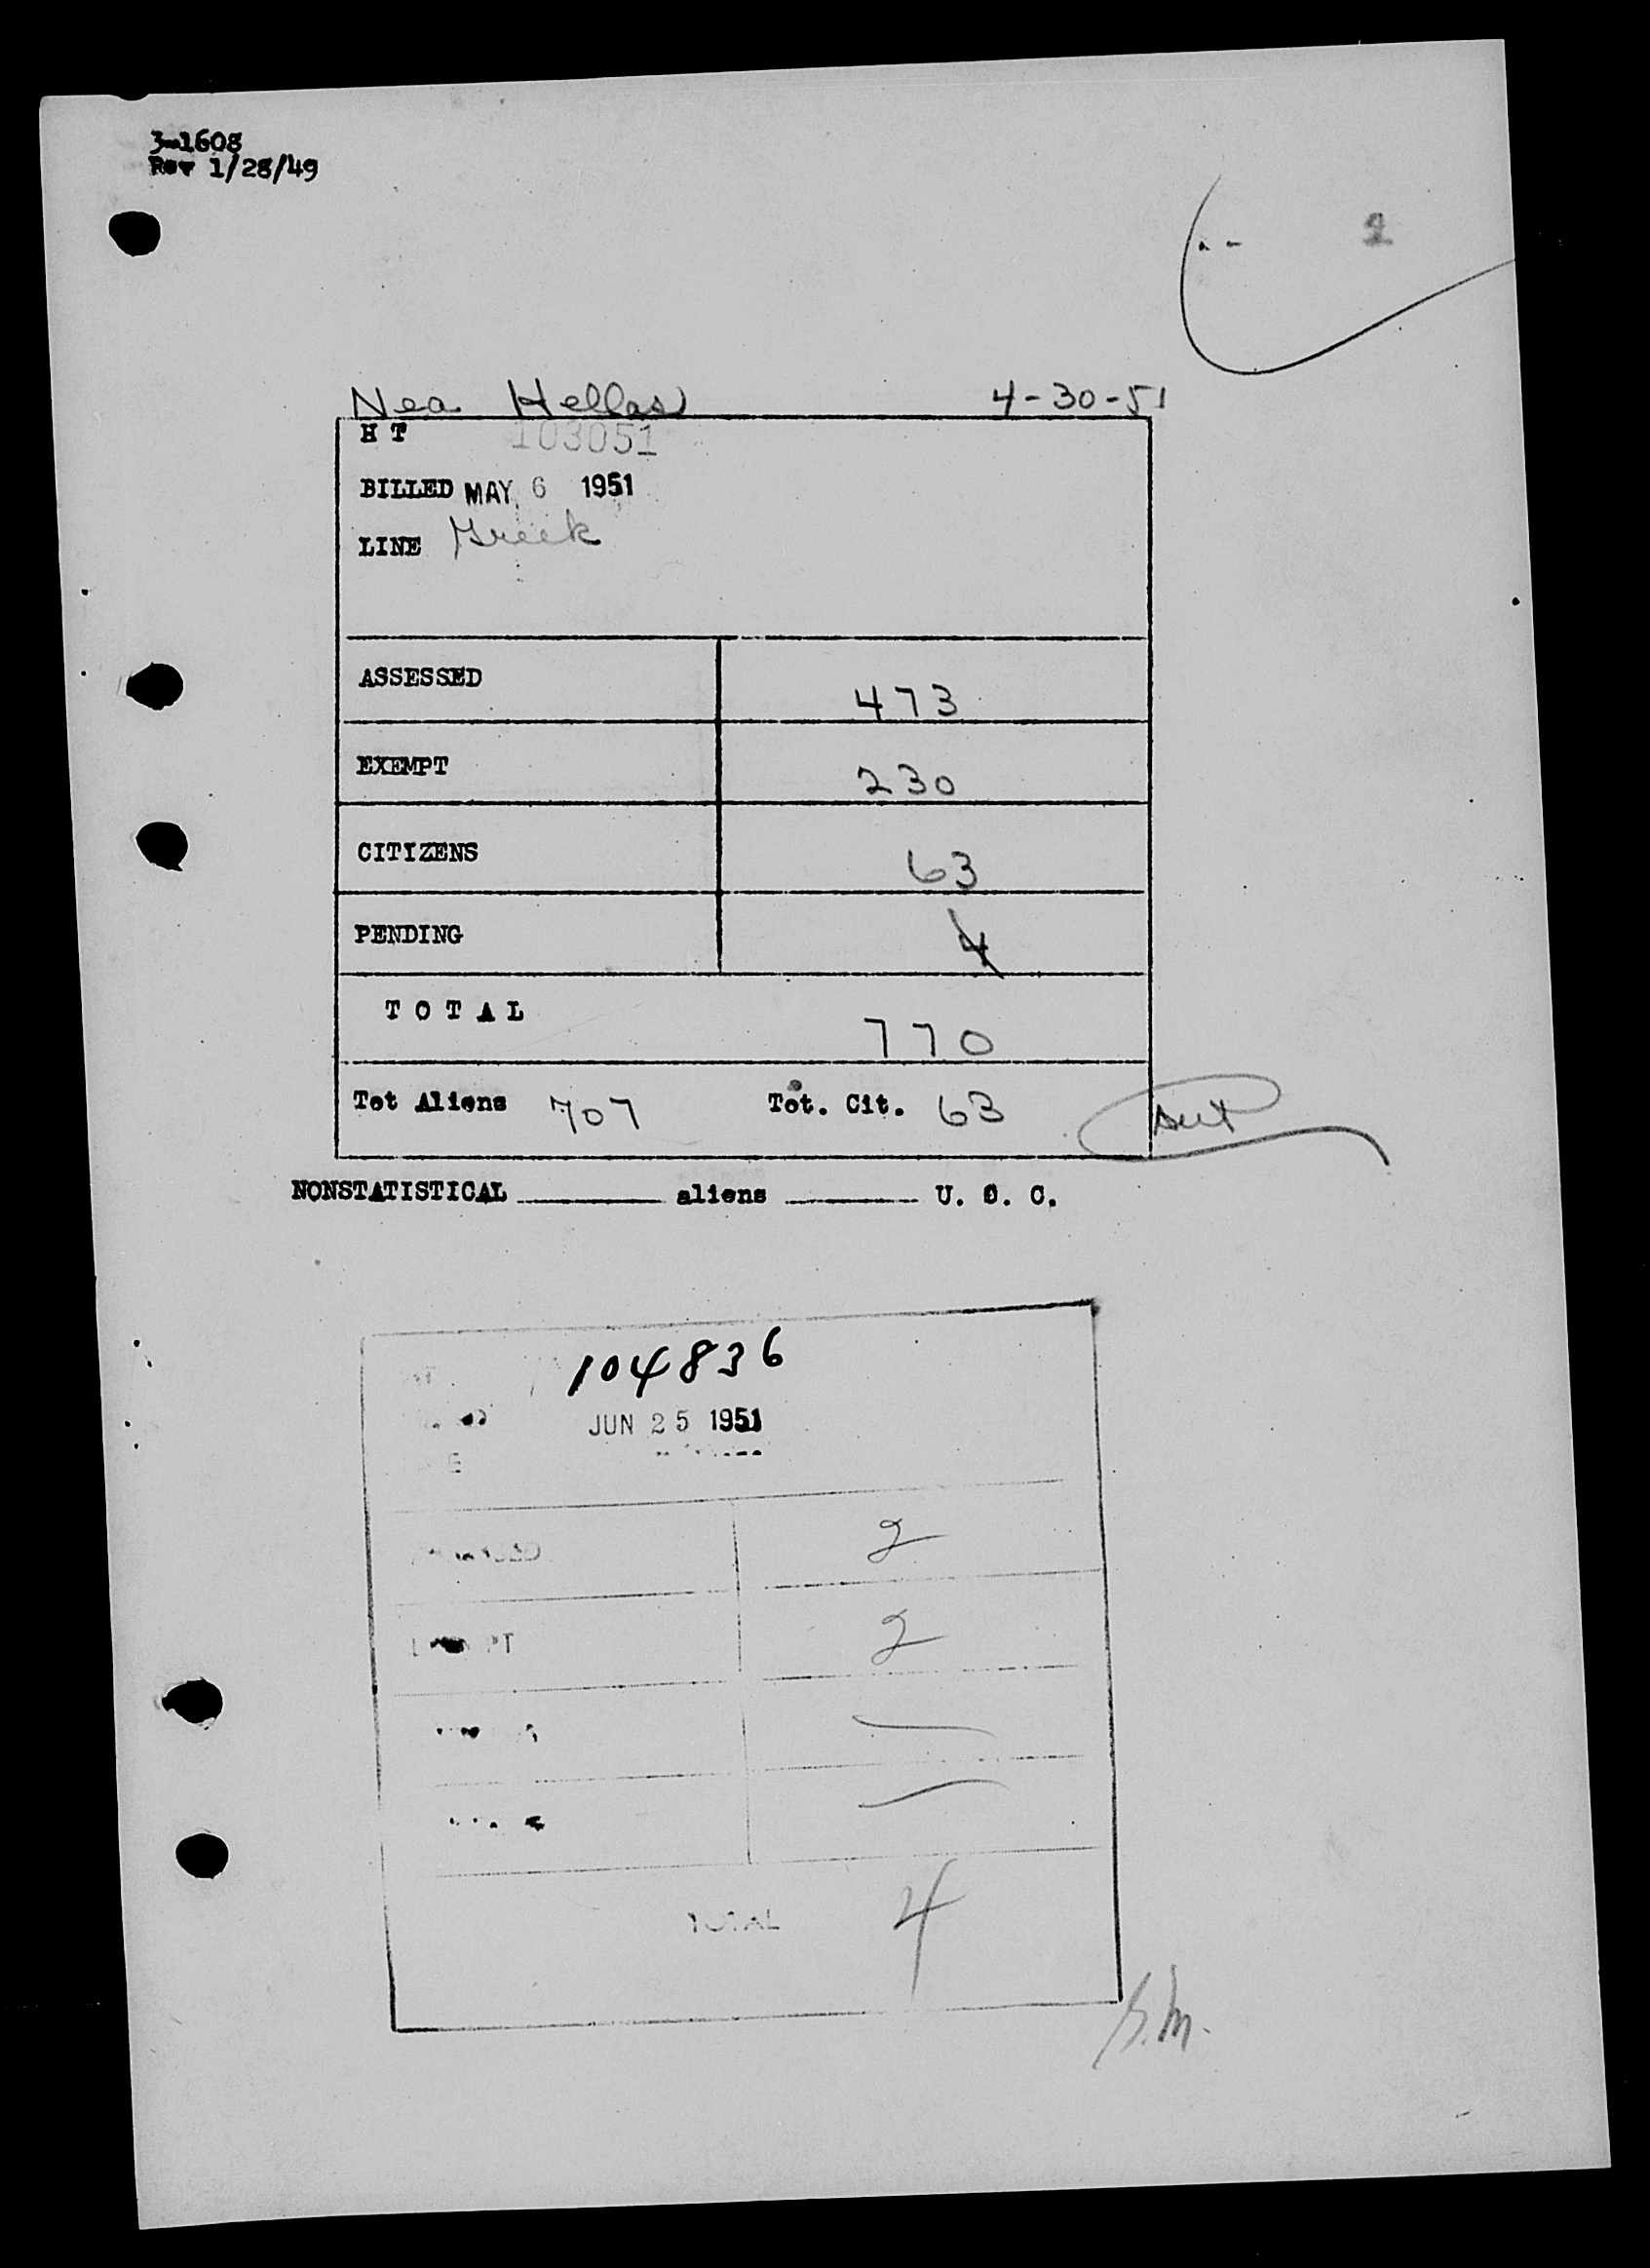 3-1608
Rev 1/28/49
2
Nea Hellas 4-30-51
H T 103051
BILLED MAY 6 1951
LINE Greek
ASSESSED 473
EXEMPT 230
CITIZENS 63
PENDING 4
T O T A L 770
Tot Aliens 707 Tot. Cit. 63
NONSTATISTICAL aliens U. S. C.
104836
JUN 25 1951
2
2
TOTAL 4
S.M.